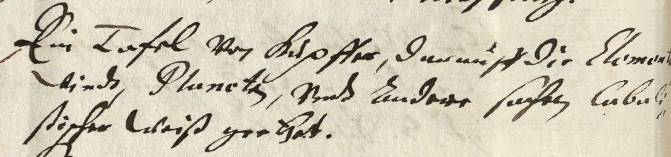 Ein Tafel von Kupffer, darauff die Element
Windt, Planeten, vnd andere sachen Cabali
stischer weiß geetzt.